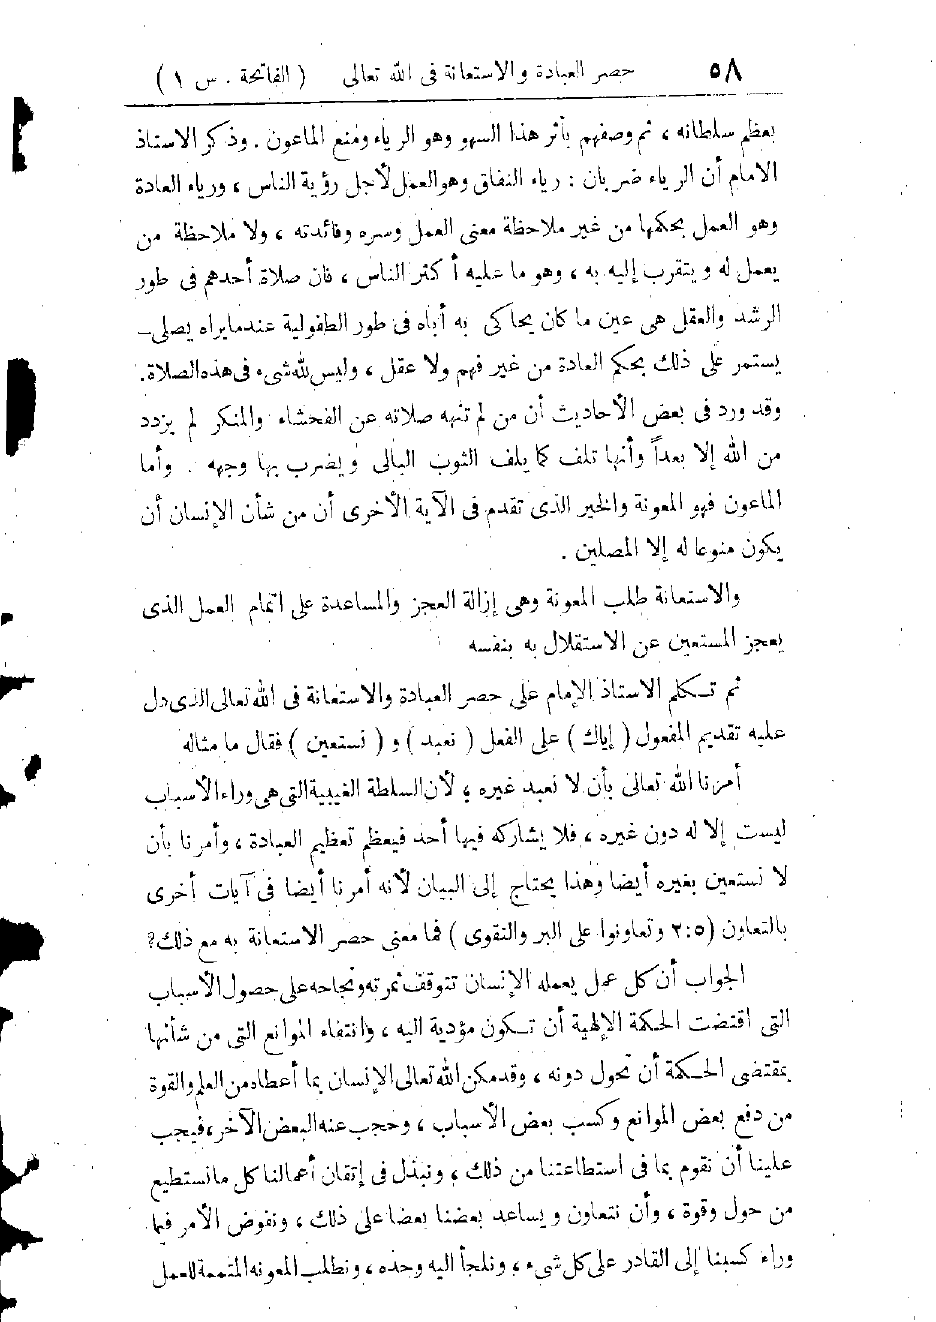 ٥٨ حصر العبادة والاستعانة فى الله تعالى ( الفاتحة . س ١ )
بعظم سلطانه ، ثم وصفهم بأثر هذا السهو وهو الرياء ومنع الماعون . وذكر الاستاذ
الامام أن الرياء ضربان : رياء النفاق وهو العمل لأجل رؤية الناس ، ورياء العادة
وهو العمل بحكمها من غير ملاحظة معنى العمل وسره وفائدته ، ولا ملاحظة من
يعمل له ويتقرب إليه به ، وهو ما عليه أكثر الناس ، فان صلاة أحدهم فى طور
الرشد والعقل هى عين ما كان يحاكى به أباه فى طور الطفولية عندما يراه يصلى ــ
يستمر على ذلك بحكم العادة من غير فهم ولا عقل ، وليس لله شىء فى هذه الصلاة .
وقد ورد فى بعض الأحاديث أن من لم تنهه صلاته عن الفحشاء والمنكر لم يزدد
من الله إلا بعداً وأنها تلف كما يلف الثوب البالى ويضرب بها وجهه . وأما
الماعون فهو المعونة والخير الذى تقدم فى الآية الأخرى أن من شأن الإنسان أن
يكون منوعا له إلا المصلين .
والاستعانة طلب المعونة وهى إزالة العجز والمساعدة على اتمام العمل الذى
يعجز المستعين عن الاستقلال به بنفسه
ثم تكلم الاستاذ الإمام على حصر العبادة والاستعانة فى الله تعالى الذى دل
عليه تقديم المفعول ( إياك ) على الفعل ( نعبد ) و ( نستعين ) فقال ما مثاله
أمرنا الله تعالى بأن لا نعبد غيره ، لأن السلطة الغيبية التى هى وراء الأسباب
ليست إلا له دون غيره ، فلا يشاركه فيها أحد فيعظم تعظيم العبادة ، وأمرنا بأن
لا نستعين بغيره أيضا وهذا يحتاج إلى البيان لأنه أمرنا أيضا فى آيات أخرى
بالتعاون ( ٥:٢ وتعاونوا على البر والتقوى ) فما معنى حصر الاستعانة به مع ذلك ؟
الجواب أن كل عمل يعمله الإنسان تتوقف ثمرته ونجاحه على حصول الأسباب
التى اقتضت الحكمة الإلهية أن تكون مؤدية اليه ، وانتفاء الموانع التى من شأنها
بمقتضى الحكمة أن تحول دونه ، وقد مكن الله تعالى الإنسان بما أعطاه من العلم والقوة
من دفع بعض الموانع وكسب بعض الأسباب ، وحجب عنه البعض الآخر ، فيجب
علينا أن نقوم بما فى استطاعتنا من ذلك ، ونبذل فى إتقان أعمالنا كل ما نستطيع
من حول وقوة ، وأن نتعاون ويساعد بعضنا بعضا على ذلك ، ونفوض الأمر فيما
وراء كسبنا إلى القادر على كل شىء ، ونلجأ اليه وحده ، ونطلب المعونه المتممة للعمل